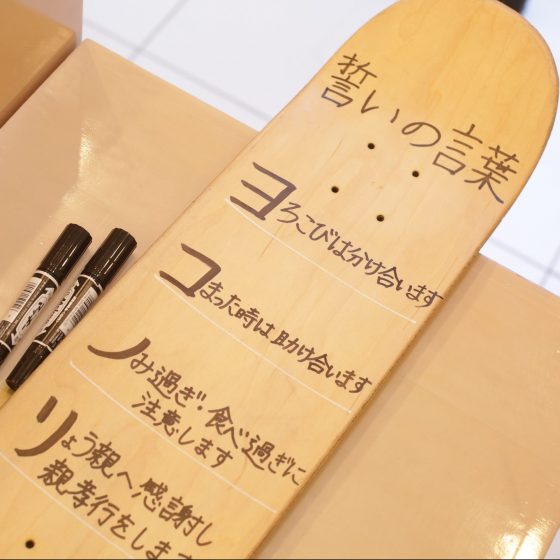 誓いの言葉
ヨろこびは分け合います
コまった時は助け合います
ノみ過ぎ・食べ過ぎに
注意します
リょう親へ感謝し
親孝行をします